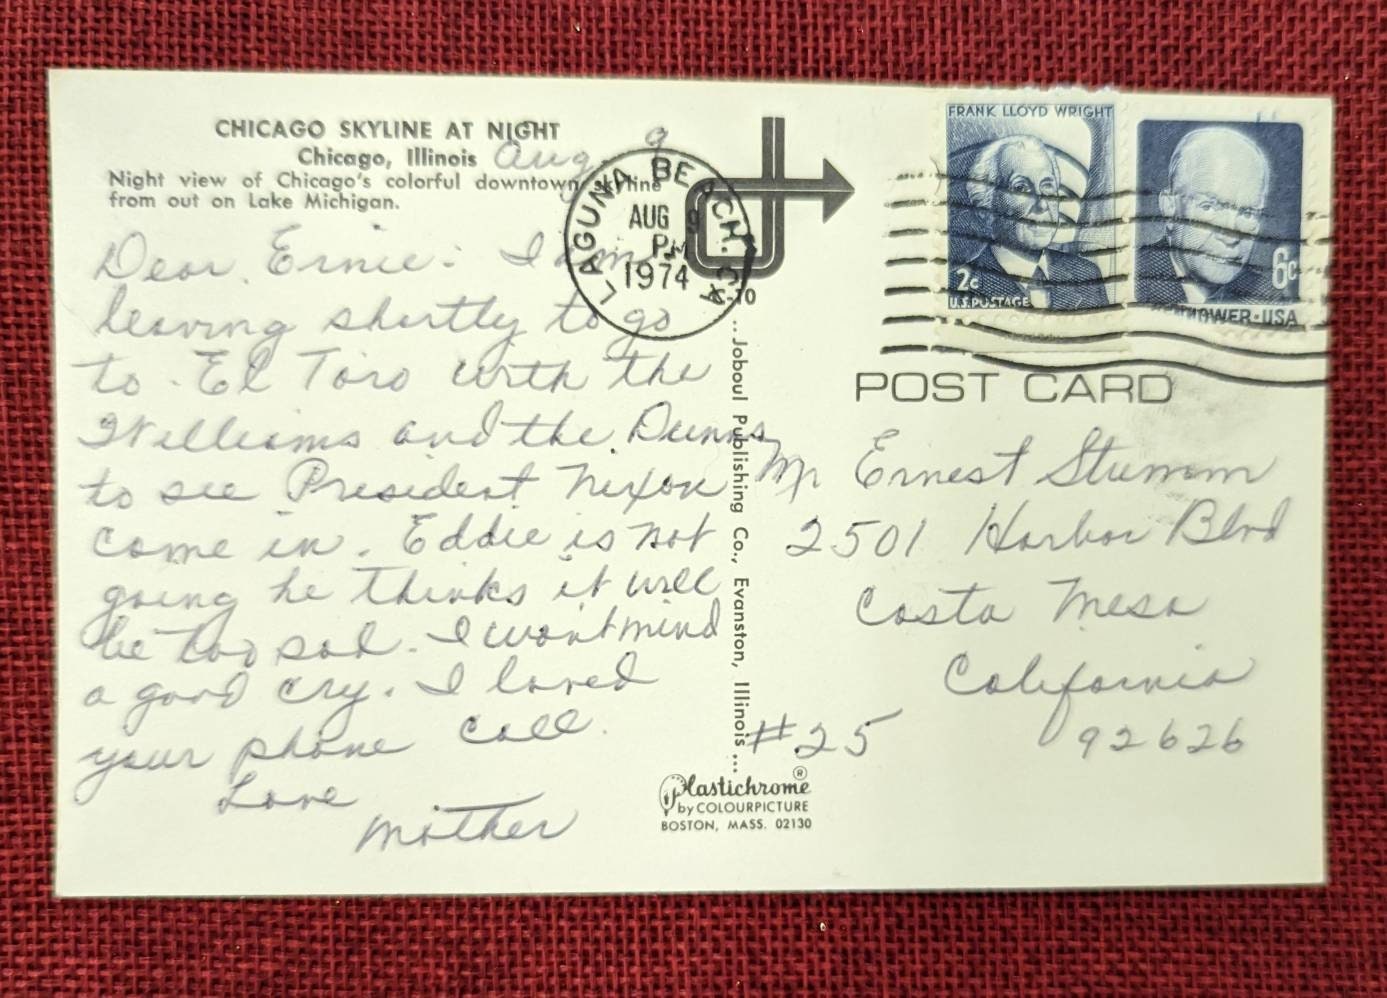 CHICAGO SKYLINE AT NIGHT
Chicago, Illinois
Aug. 9
Night view of Chicago's colorful downtown skyline
from out on Lake Michigan.
Dear Ernie - I am
leaving shortly to go
to El Toro with the
Williams and the Dunns
to see President Nixon
come in. Eddie is not
going he thinks it will
be too sad. I wont mind
a good cry. I loved
your phone call.
Love
Mother
LAGUNA BEACH, CA
AUG 9
PM
1974
...Joboul Publishing Co., Evanston, Illinois...
Plastichrome®
by COLOURPICTURE
BOSTON, MASS. 02130
FRANK LLOYD WRIGHT
2c
U.S. POSTAGE
6c
EISENHOWER·USA
POST CARD
Mr Ernest Stumm
2501 Harbor Blvd
Costa Mesa
California
#25 92626